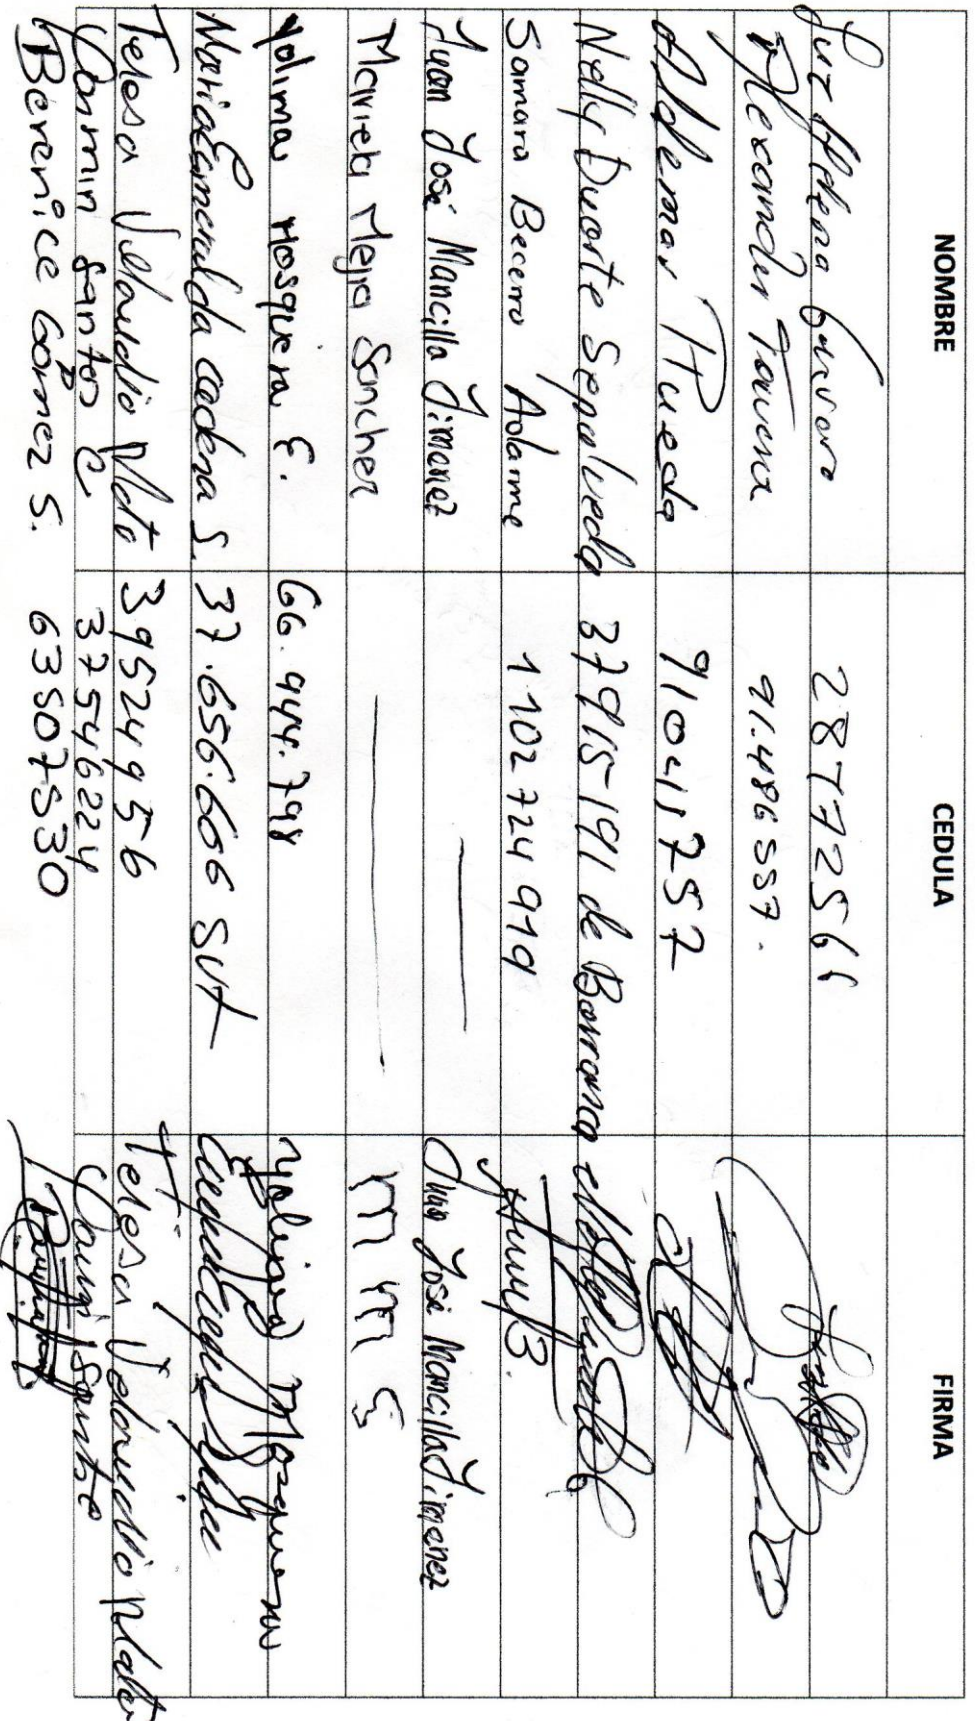 NOMBRE CEDULA FIRMA
Luz 28777256
Alexander 91.486557.
Aldemar Rueda 91041757
Nelly Duarte Sepulveda 37915191 de Barranca
Samara Becerra Adarme 1102724919
Juan José Mancilla Jimenez — Juan José Mancilla Jimenez
Marieta Mejia Sanchez — m m s
Yolima Mosquera E. 66.944.798 Yolima Mosquera
Maria Esmeralda Cadena S. 37.656.606 SVT
Teresa Velandio Plato 39524956 Teresa Velandio Plata
Yasmin Santos C 37546224 Santos
Berenice Gómez S. 63507530